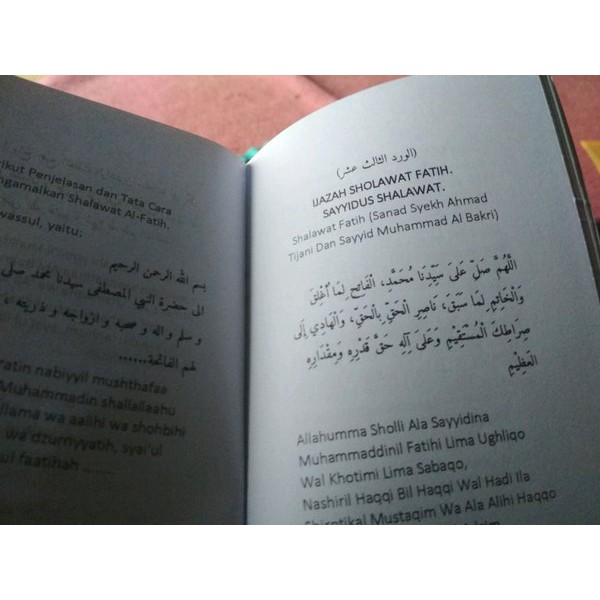 ikut Penjelasan dan Tata Cara
ngamalkan Shalawat Al-Fatih.
wassul, yaitu:
بسم الله الرحمن الرحيم
الى حضرة النبي المصطفى سيدنا محمد صلى
و سلم واله و صحبه و ازواجه و ذريته ،
لهم الفاتحة......
ratin nabiyyil mushthafaa
Muhammadin shallallaahu
llama wa aalihi wa shohbihi
wa dzurriyyatih, syai'ul
ul faatihah
(الورد الثالث عشر)
IJAZAH SHOLAWAT FATIH.
SAYYIDUS SHALAWAT.
Shalawat Fatih (Sanad Syekh Ahmad
Tijani Dan Sayyid Muhammad Al Bakri)
اللَّهُمَّ صَلِّ عَلَى سَيِّدِنَا مُحَمَّدٍ، الْفَاتِحِ لِمَا أُغْلِقَ
وَالْخَاتِمِ لِمَا سَبَقَ، نَاصِرِ الْحَقِّ بِالْحَقِّ، وَالْهَادِي إِلَى
صِرَاطِكَ الْمُسْتَقِيْمِ وَعَلَى آلِهِ حَقَّ قَدْرِهِ وَمِقْدَارِهِ
الْعَظِيْمِ
Allahumma Sholli Ala Sayyidina
Muhammaddinil Fatihi Lima Ughliqo
Wal Khotimi Lima Sabaqo,
Nashiril Haqqi Bil Haqqi Wal Hadi Ila
Shirotikal Mustaqim Wa Ala Alihi Haqqo